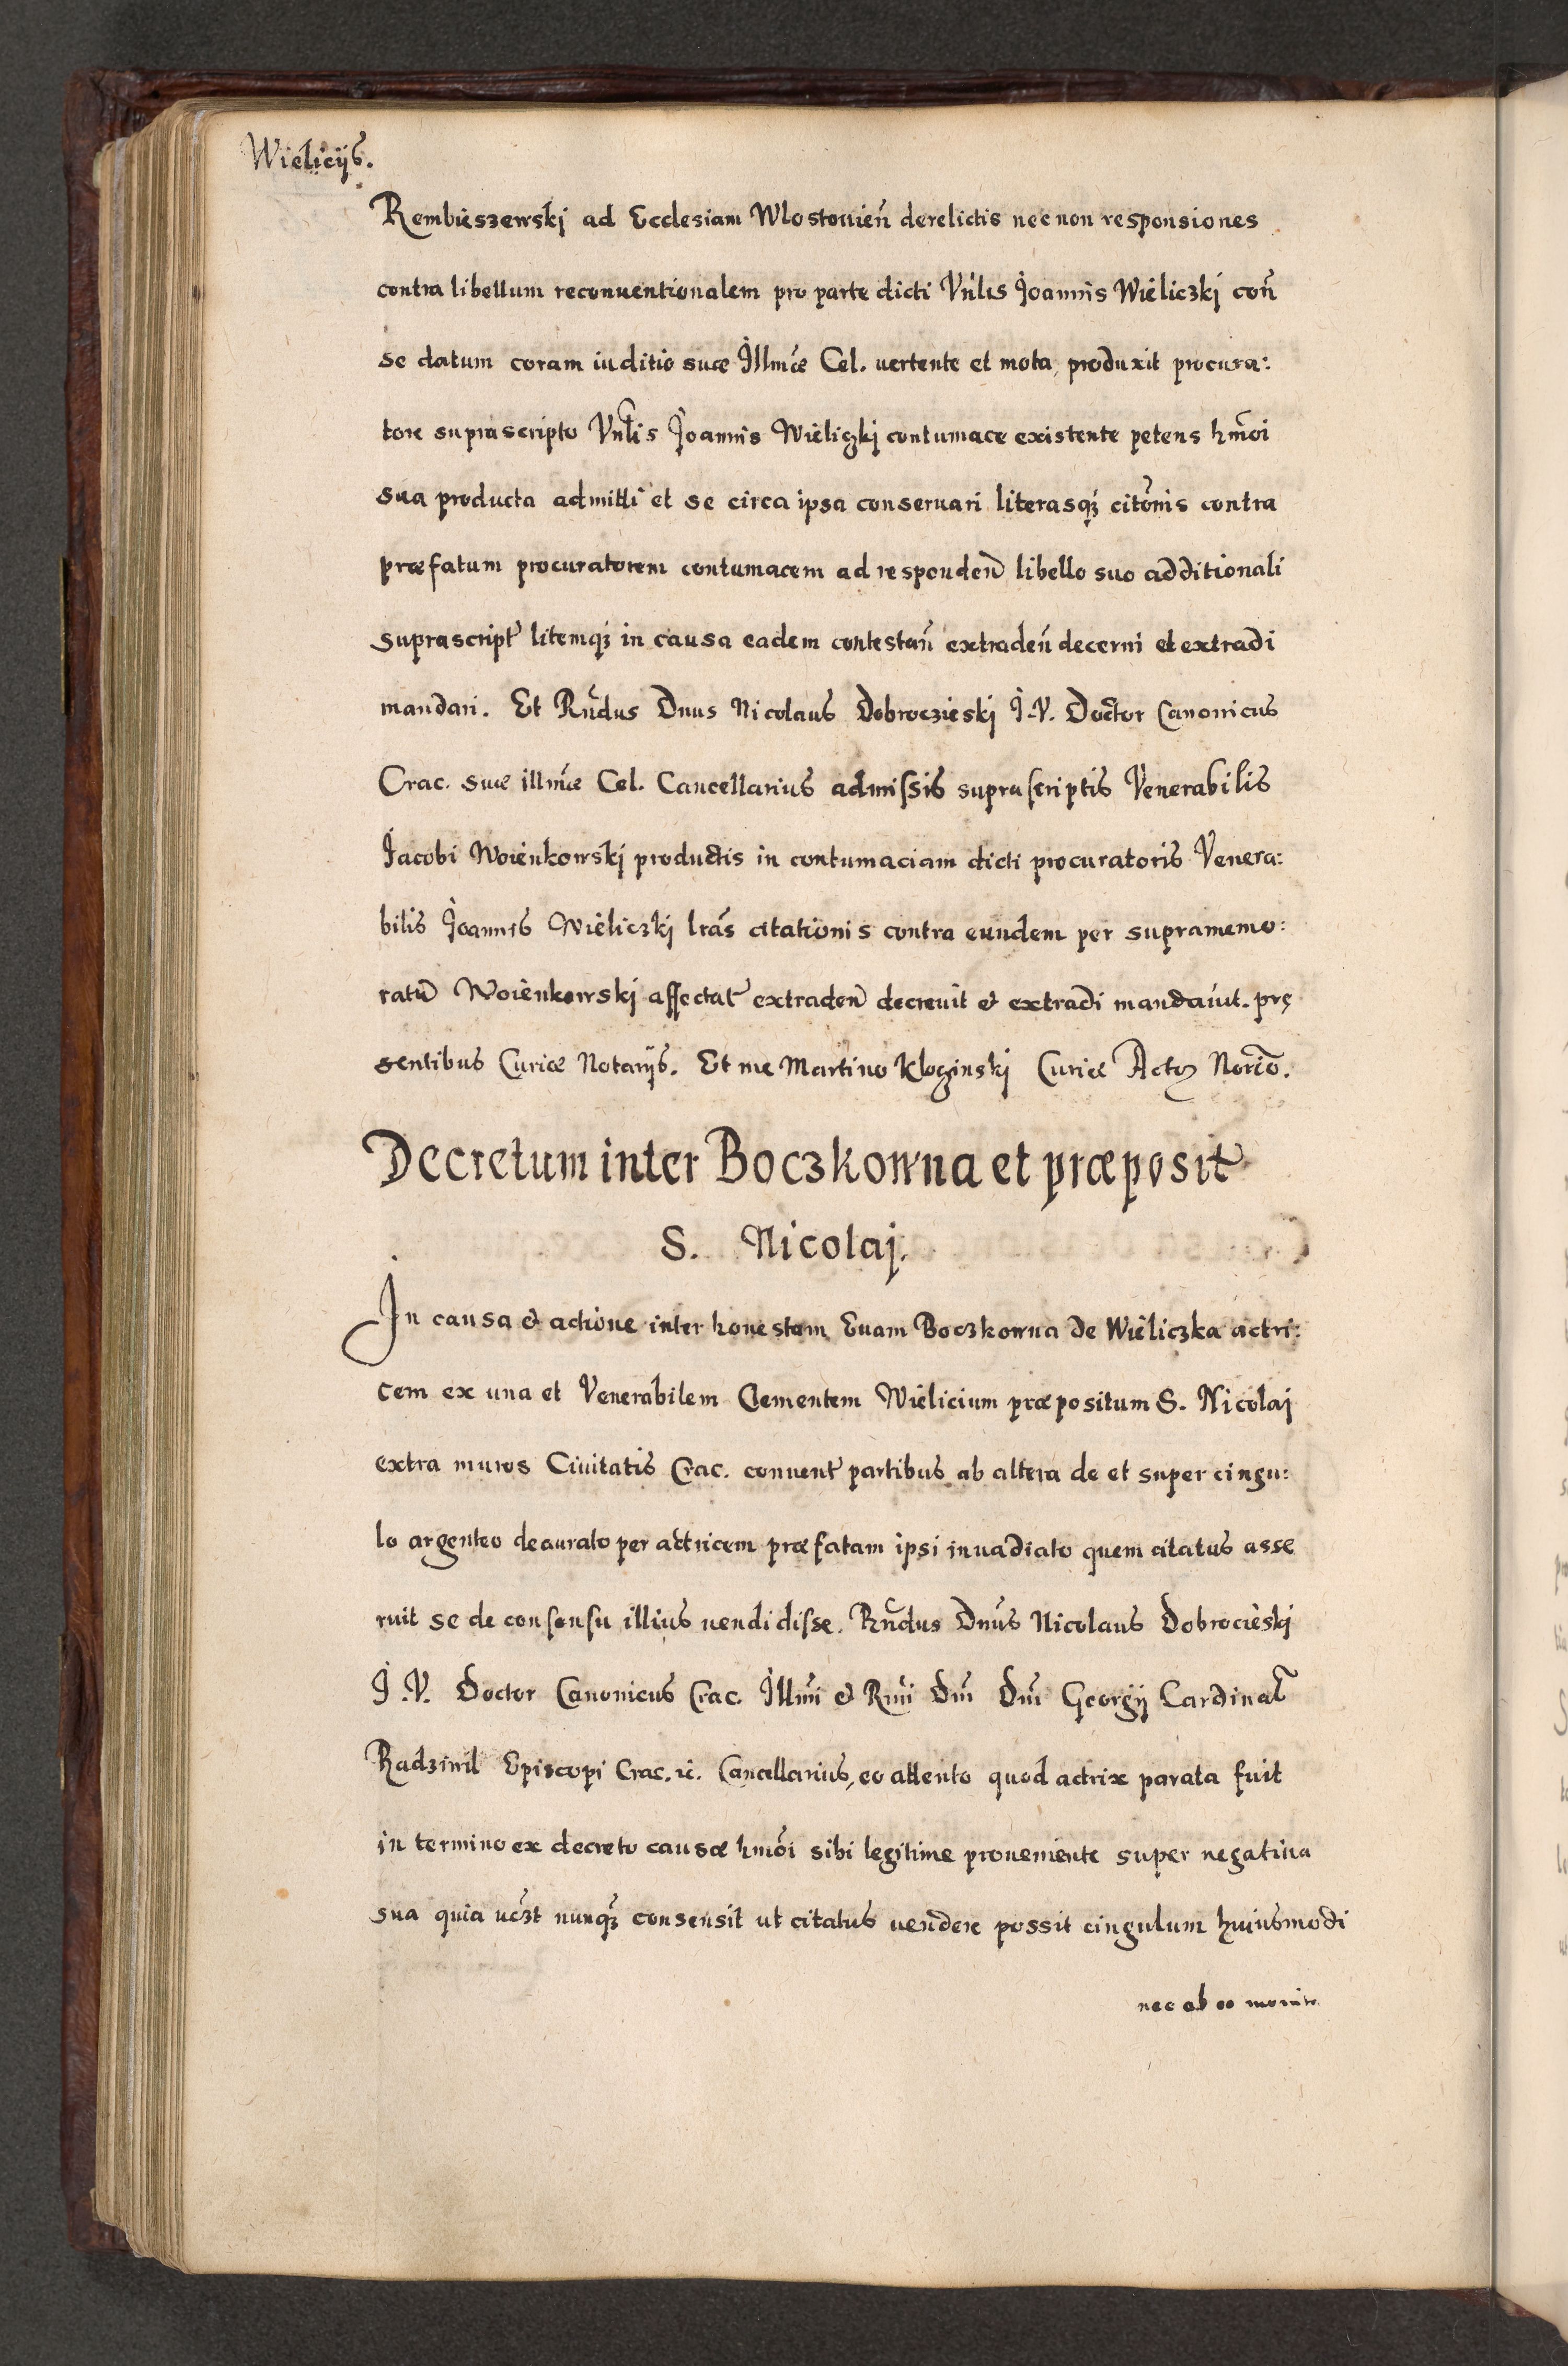 Wielicijs.
Rembieszewski ad Ecclesiam Wlostouień derelictis nec non responsiones
contra libellum reconuentionalem pro parte dicti Vńlis Joannis Wieliczkj coñ
se datum coram iuditio suæ Jllmæ Cel. uertente et mota, produxit procura:
tore suprascripto Vnlis Joannis Wieliczkj contumace existente petens hmoi
sua producta admitti et se circa ipsa conseruari literasqȝ citonis contra
præfatum procuratorem contumacem ad respondeñ libello suo additionali
suprascript litemqȝ in causa eadem contestañ extradeñ decerni et extradi
mandari. Et Rndus Dnus Nicolaus Dobroczieskj J.V. Doctor Canonicus
Crac. suæ illmæ Cel. Cancellarius admiſsis supraſcriptis Venerabilis
Jacobi Woienkowskj productis in contumaciam dicti procuratoris Venera:
bilis Joannis Wieliczkj lrãs citationis contra eundem per supramemo:
ratũ Woienkowskj affectat extradeñ decreuit & extradi mandauit. prę
sentibus Curiæ Notarijs. Et me Martino Kloginskj Curiæ Actoꝝ Norio.
Decretum inter Boczkowna et præposit
S. Nicolaj.
Jn causa & actione inter honestam Euam Boczkowna de Wieliczka actri:
cem ex una et Venerabilem Clementem Wielicium præpositum S. Nicolaj
extra muros Ciuitatis Crac. conuent partibus ab altera de et super cingu:
lo argenteo deaurato per actricem præfatam ipsi inuadiato quem citatus asse
ruit se de conſenſu illius uendidiſse. Rndus Dnus Nicolaus Dobrocieskj
J.V. Doctor Canonicus Crac. Jllmi & Rmi Dni Dni Georgij Cardinal
Radziwil Episcopi Crac. ꝛc. Cancellarius, eo attento quod actrix parata fuit
in termino ex decreto causæ hmoi sibi legitime proueniente super negatiua
sua quia uczt nunqȝ consensit ut citatus uendere possit cingulum huiusmodi
nec ab eo monita